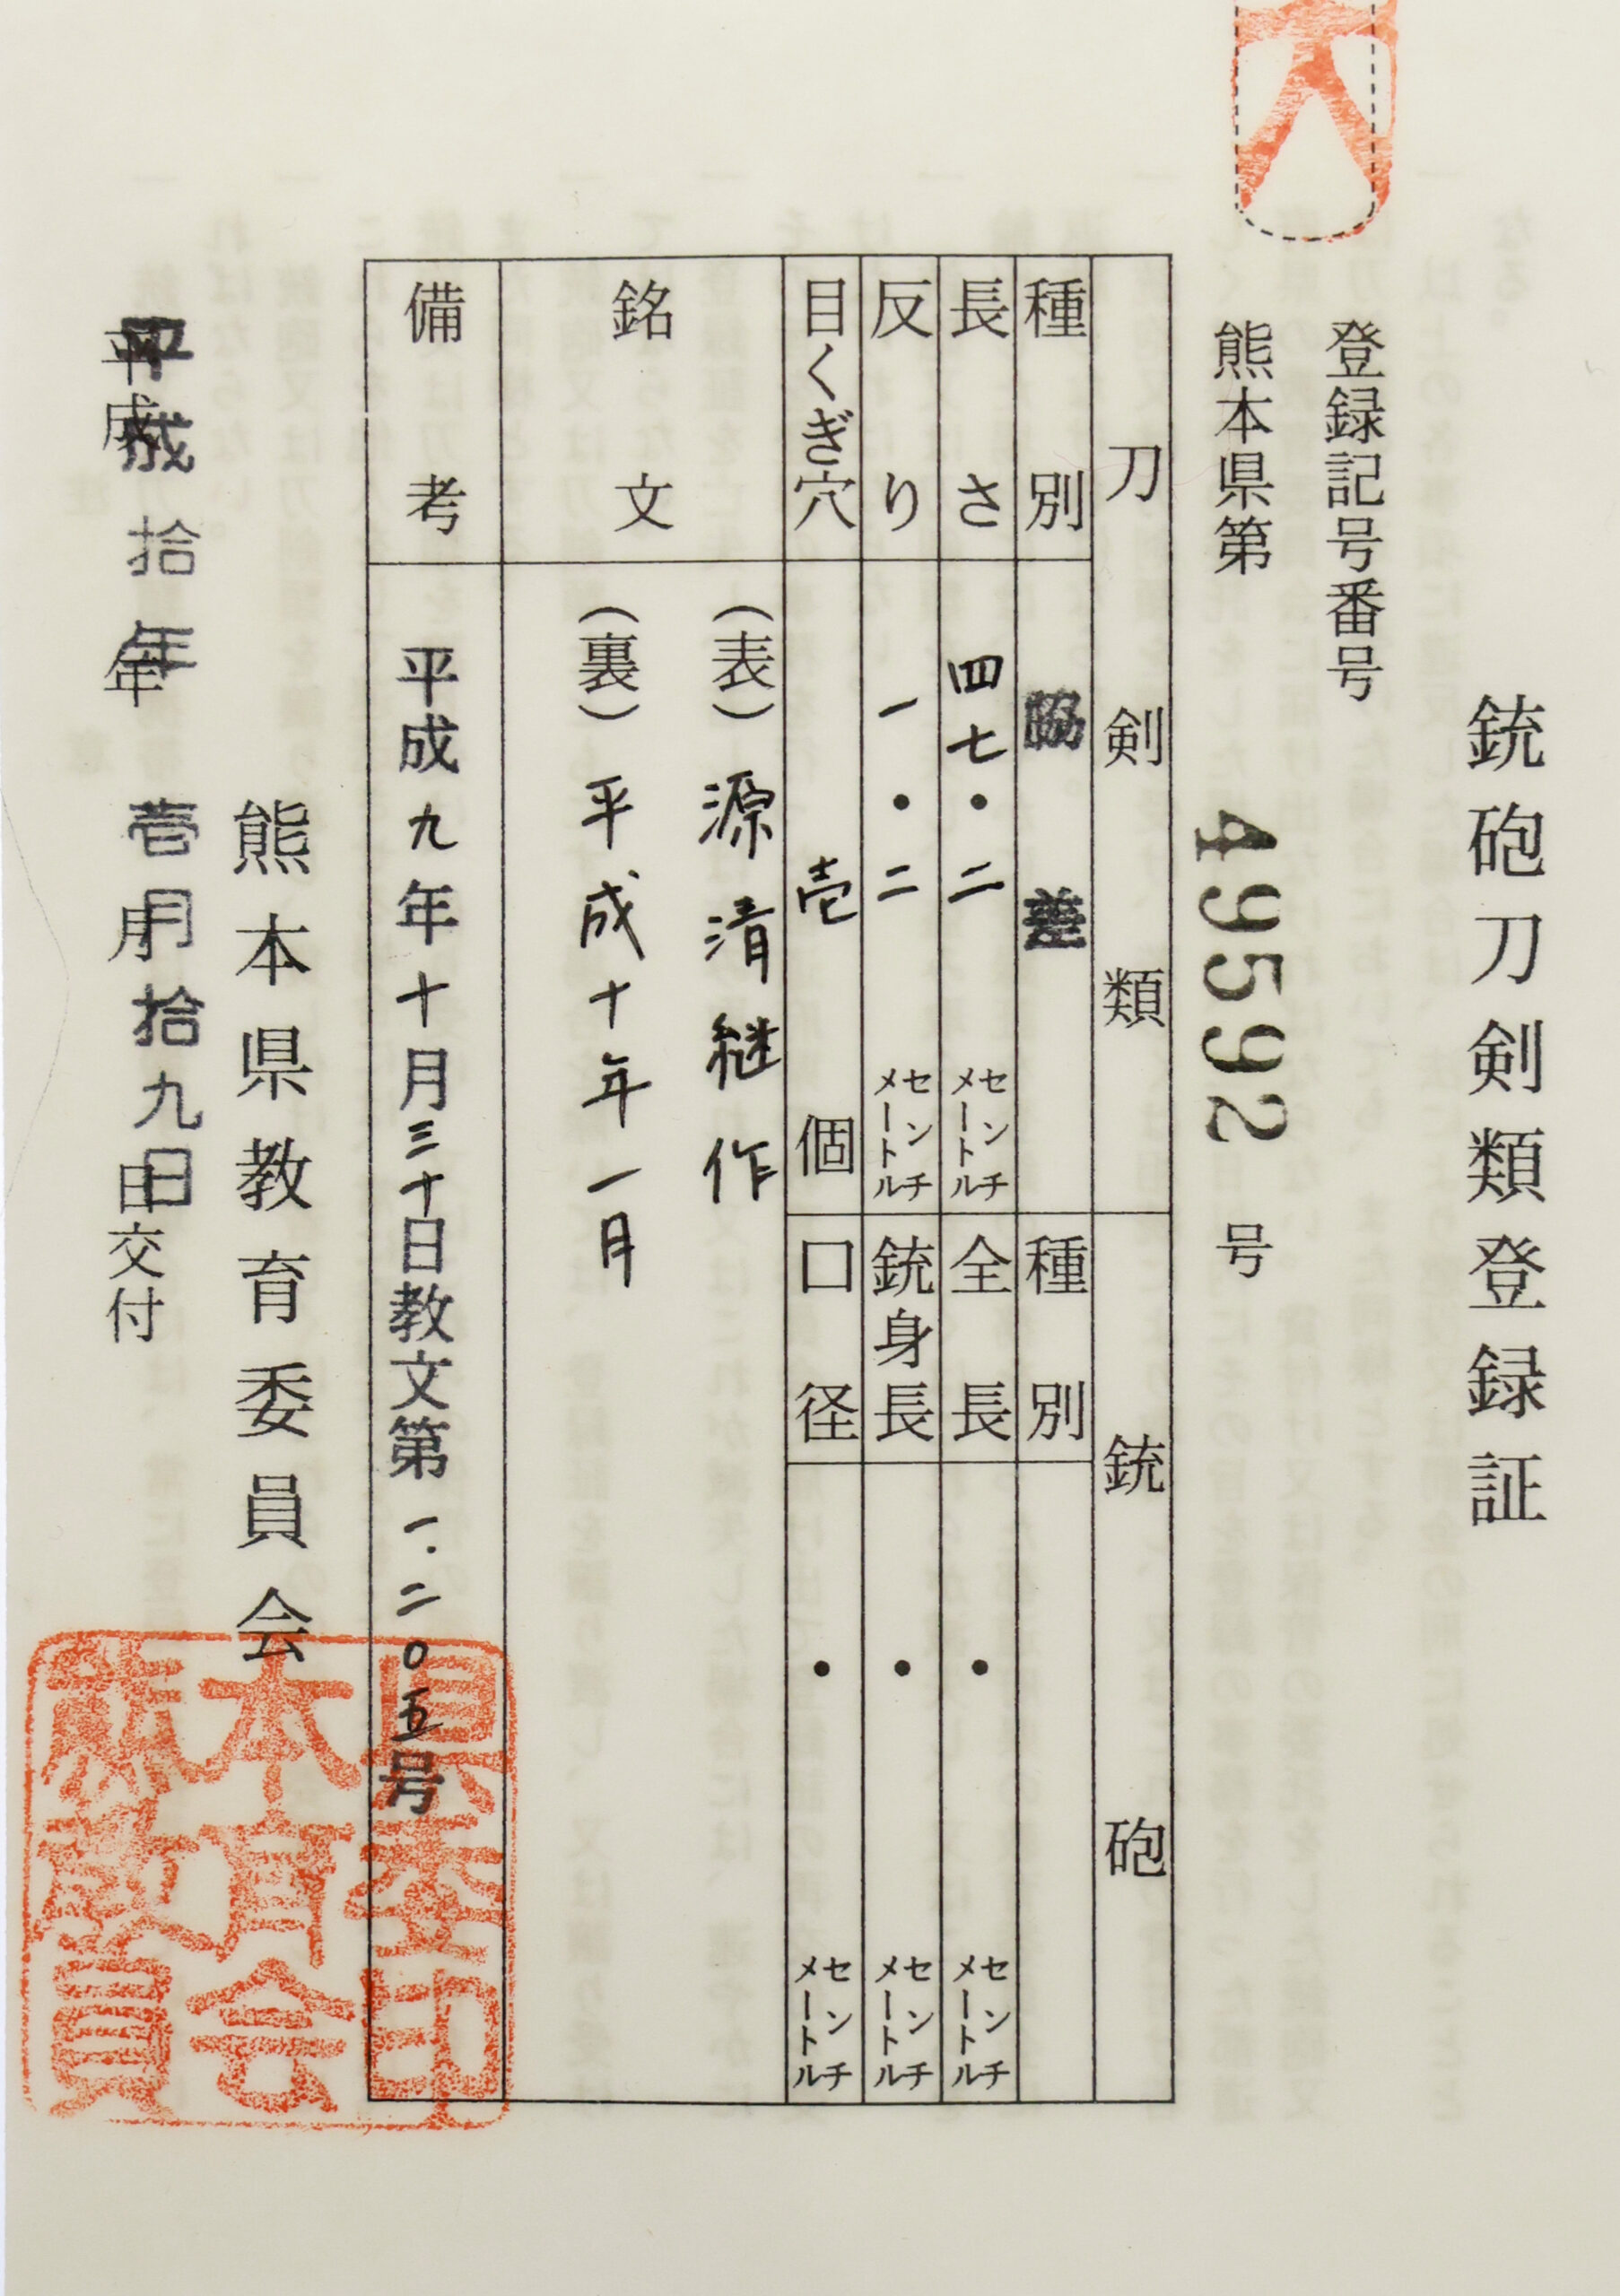 銃砲刀剣類登録証
登録記号番号
熊本県第 49592 号
刀剣類 銃砲
種別 脇差 種別
長さ 四七・二 センチメートル 全長 ・ センチメートル
反り 一・二 センチメートル 銃身長 ・ センチメートル
目くぎ穴 壱 個 口径 ・ センチメートル
銘文 (表) 源清継作
(裏) 平成十年一月
備考 平成九年十月三十日教文第一・二〇五号
熊本県教育委員会
平成拾年壱月拾九日交付
熊本県
教育委
員会印